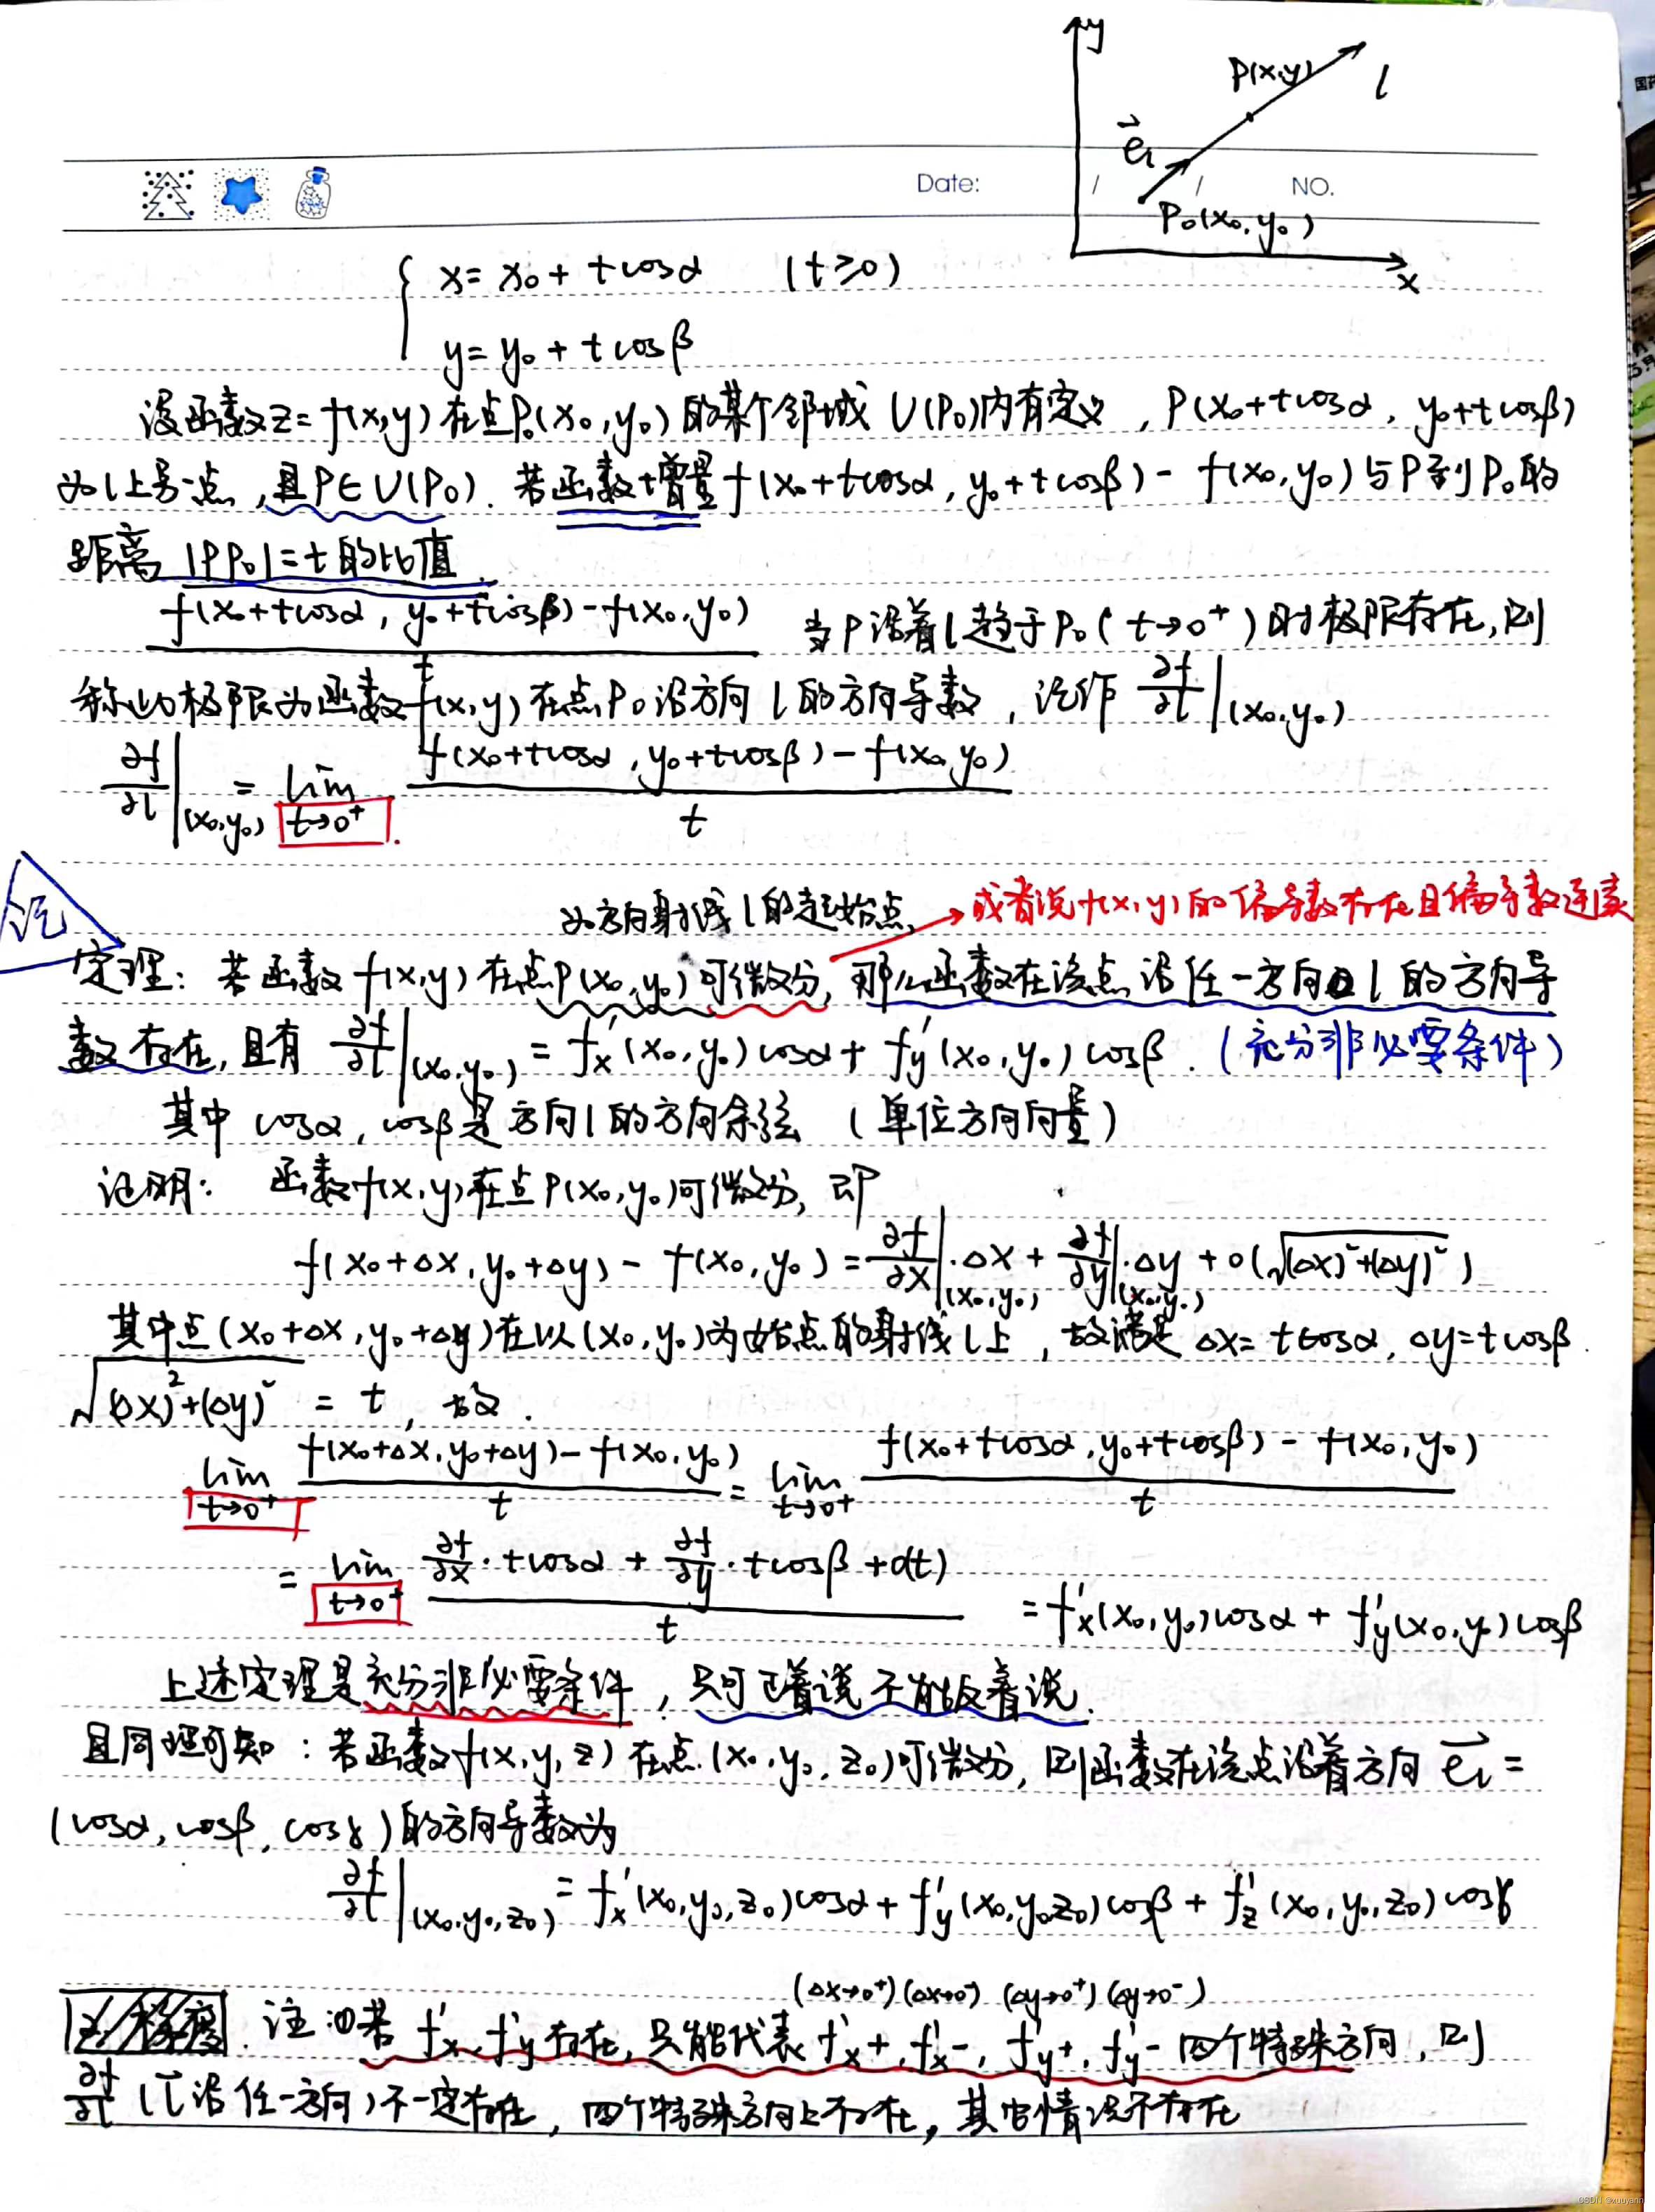 y
P(x,y)
l
e_l
P₀(x₀,y₀)
x
Date: / / NO.
国药
x = x₀ + tcosα (t≥0)
y = y₀ + tcosβ
设函数z=f(x,y)在点P₀(x₀,y₀)的某个邻域U(P₀)内有定义,P(x₀+tcosα, y₀+tcosβ)
为l上另一点,且P∈U(P₀).若函数增量f(x₀+tcosα, y₀+tcosβ)-f(x₀,y₀)与P到P₀的
距离|PP₀|=t的比值
f(x₀+tcosα, y₀+tcosβ)-f(x₀,y₀) / t 当P沿着l趋于P₀(t→0⁺)时极限存在,则
称此极限为函数f(x,y)在点P₀沿方向l的方向导数,记作 ∂f/∂l|(x₀,y₀)
∂f/∂l|(x₀,y₀) = lim t→0⁺ f(x₀+tcosα, y₀+tcosβ)-f(x₀,y₀) / t
记
为方向射线l的起始点, →或者说f(x,y)的偏导数存在且偏导数连续
定理: 若函数f(x,y)在点P(x₀,y₀)可微分,那么函数在该点沿任一方向l的方向导
数存在,且有 ∂f/∂l|(x₀,y₀) = f'x(x₀,y₀)cosα + f'y(x₀,y₀)cosβ. (充分非必要条件)
其中cosα, cosβ是方向l的方向余弦 (单位方向向量)
证明: 函数f(x,y)在点P(x₀,y₀)可微分,即
f(x₀+Δx, y₀+Δy) - f(x₀,y₀) = ∂f/∂x|(x₀,y₀)·Δx + ∂f/∂y|(x₀,y₀)·Δy + o(√((Δx)²+(Δy)²))
其中点(x₀+Δx, y₀+Δy)在以(x₀,y₀)为始点的射线l上,故满足Δx=tcosα, Δy=tcosβ.
√((Δx)²+(Δy)²) = t, 故.
lim t→0⁺ f(x₀+Δx,y₀+Δy)-f(x₀,y₀) / t = lim t→0⁺ f(x₀+tcosα, y₀+tcosβ) - f(x₀,y₀) / t
= lim t→0⁺ ∂f/∂x·tcosα + ∂f/∂y·tcosβ + o(t) / t = f'x(x₀,y₀)cosα + f'y(x₀,y₀)cosβ
上述定理是充分非必要条件,只可正着说不能反着说.
且同理可知:若函数f(x,y,z)在点(x₀,y₀,z₀)可微分,则函数在该点沿着方向e_l=
(cosα, cosβ, cosγ)的方向导数为
∂f/∂l|(x₀,y₀,z₀) = f'x(x₀,y₀,z₀)cosα + f'y(x₀,y₀,z₀)cosβ + f'z(x₀,y₀,z₀)cosγ
(Δx→0⁺)(Δx→0⁻) (Δy→0⁺)(Δy→0⁻)
注:①若f'x, f'y存在,只能代表f'x+, f'x-, f'y+, f'y-四个特殊方向,则
∂f/∂l(l沿任一方向)不一定存在,四个特殊方向上存在,其它情况不存在
CSDN @xuuyann